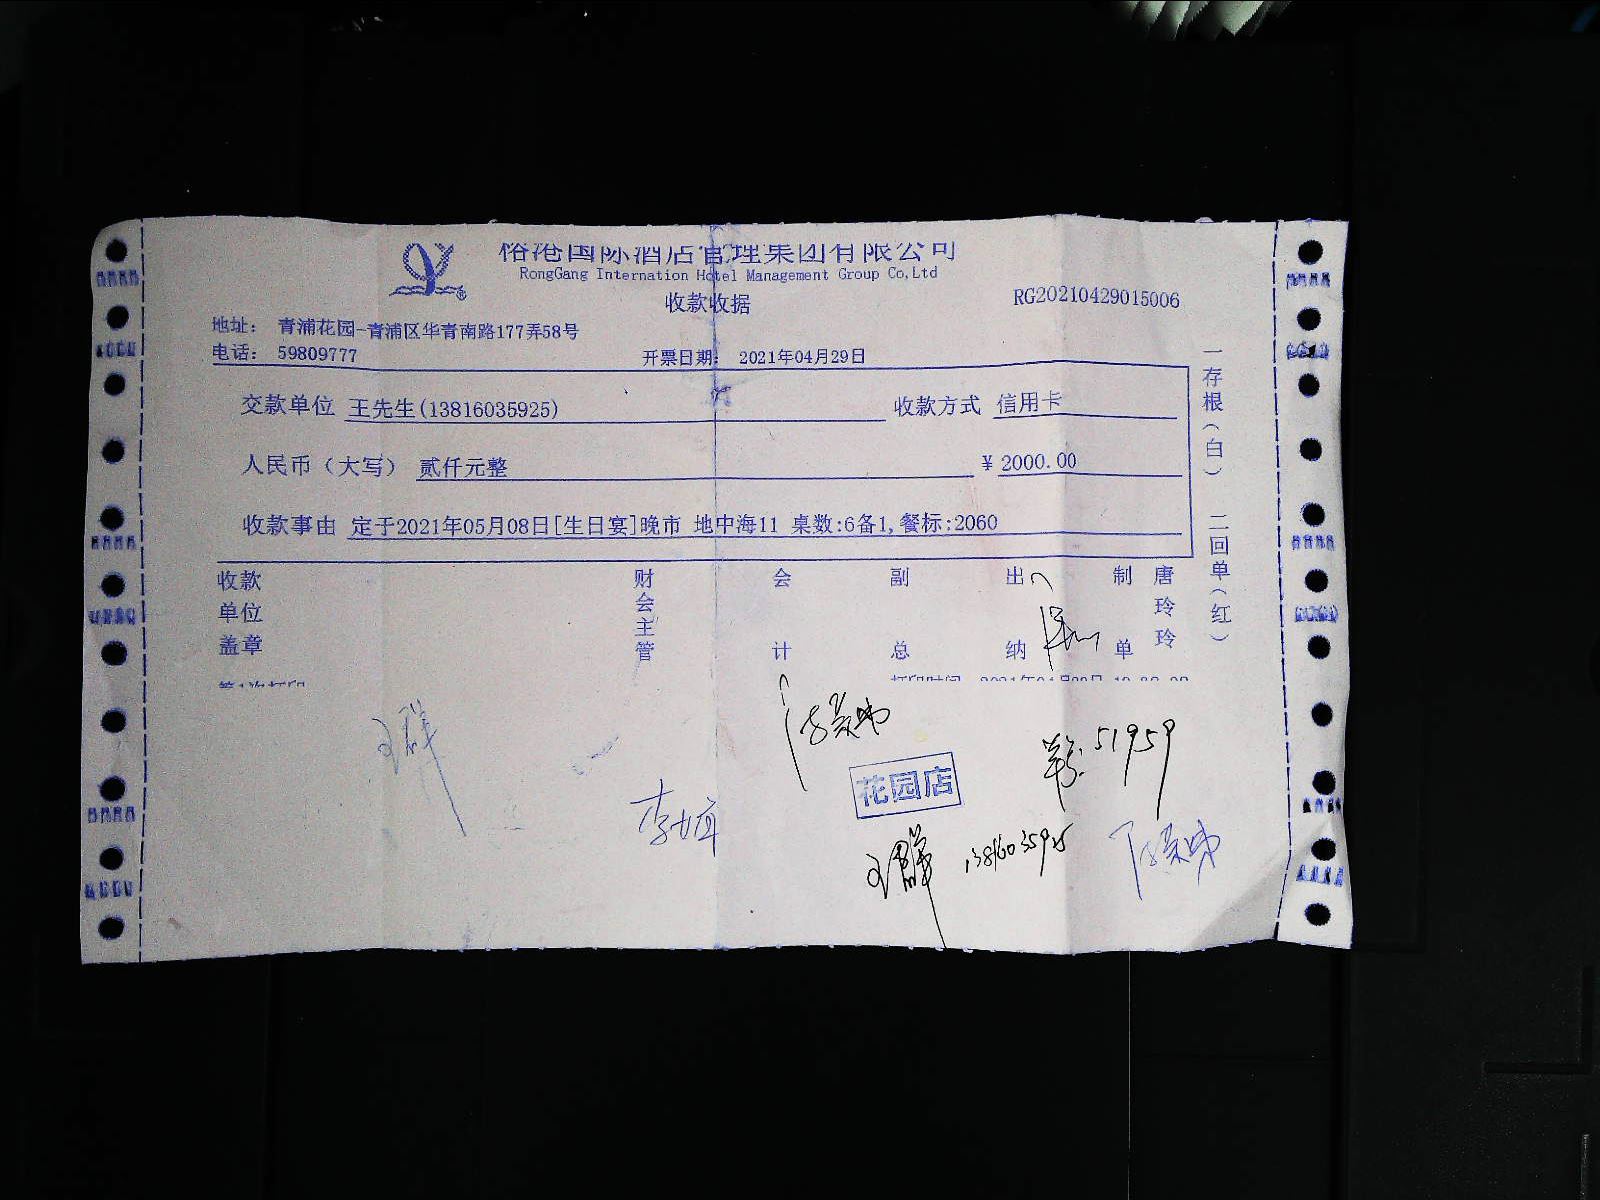 国际酒店管理集团有限公司
RongGang Internation Hotel Management Group Co,Ltd
收款收据
RG20210429015006
地址： 青浦花园-青浦区华青南路177弄58号
电话： 59809777
开票日期： 2021年04月29日
交款单位 王先生(13816035925) 收款方式 信用卡
人民币（大写） 贰仟元整 ￥ 2000.00
收款事由 定于2021年05月08日[生日宴]晚市 地中海11 桌数:6备1,餐标:2060
一存根（白） 二回单（红）
收款单位盖章 财会主管 会计 副总 出纳 制单 唐玲玲
51959
花园店
王群 13816035925